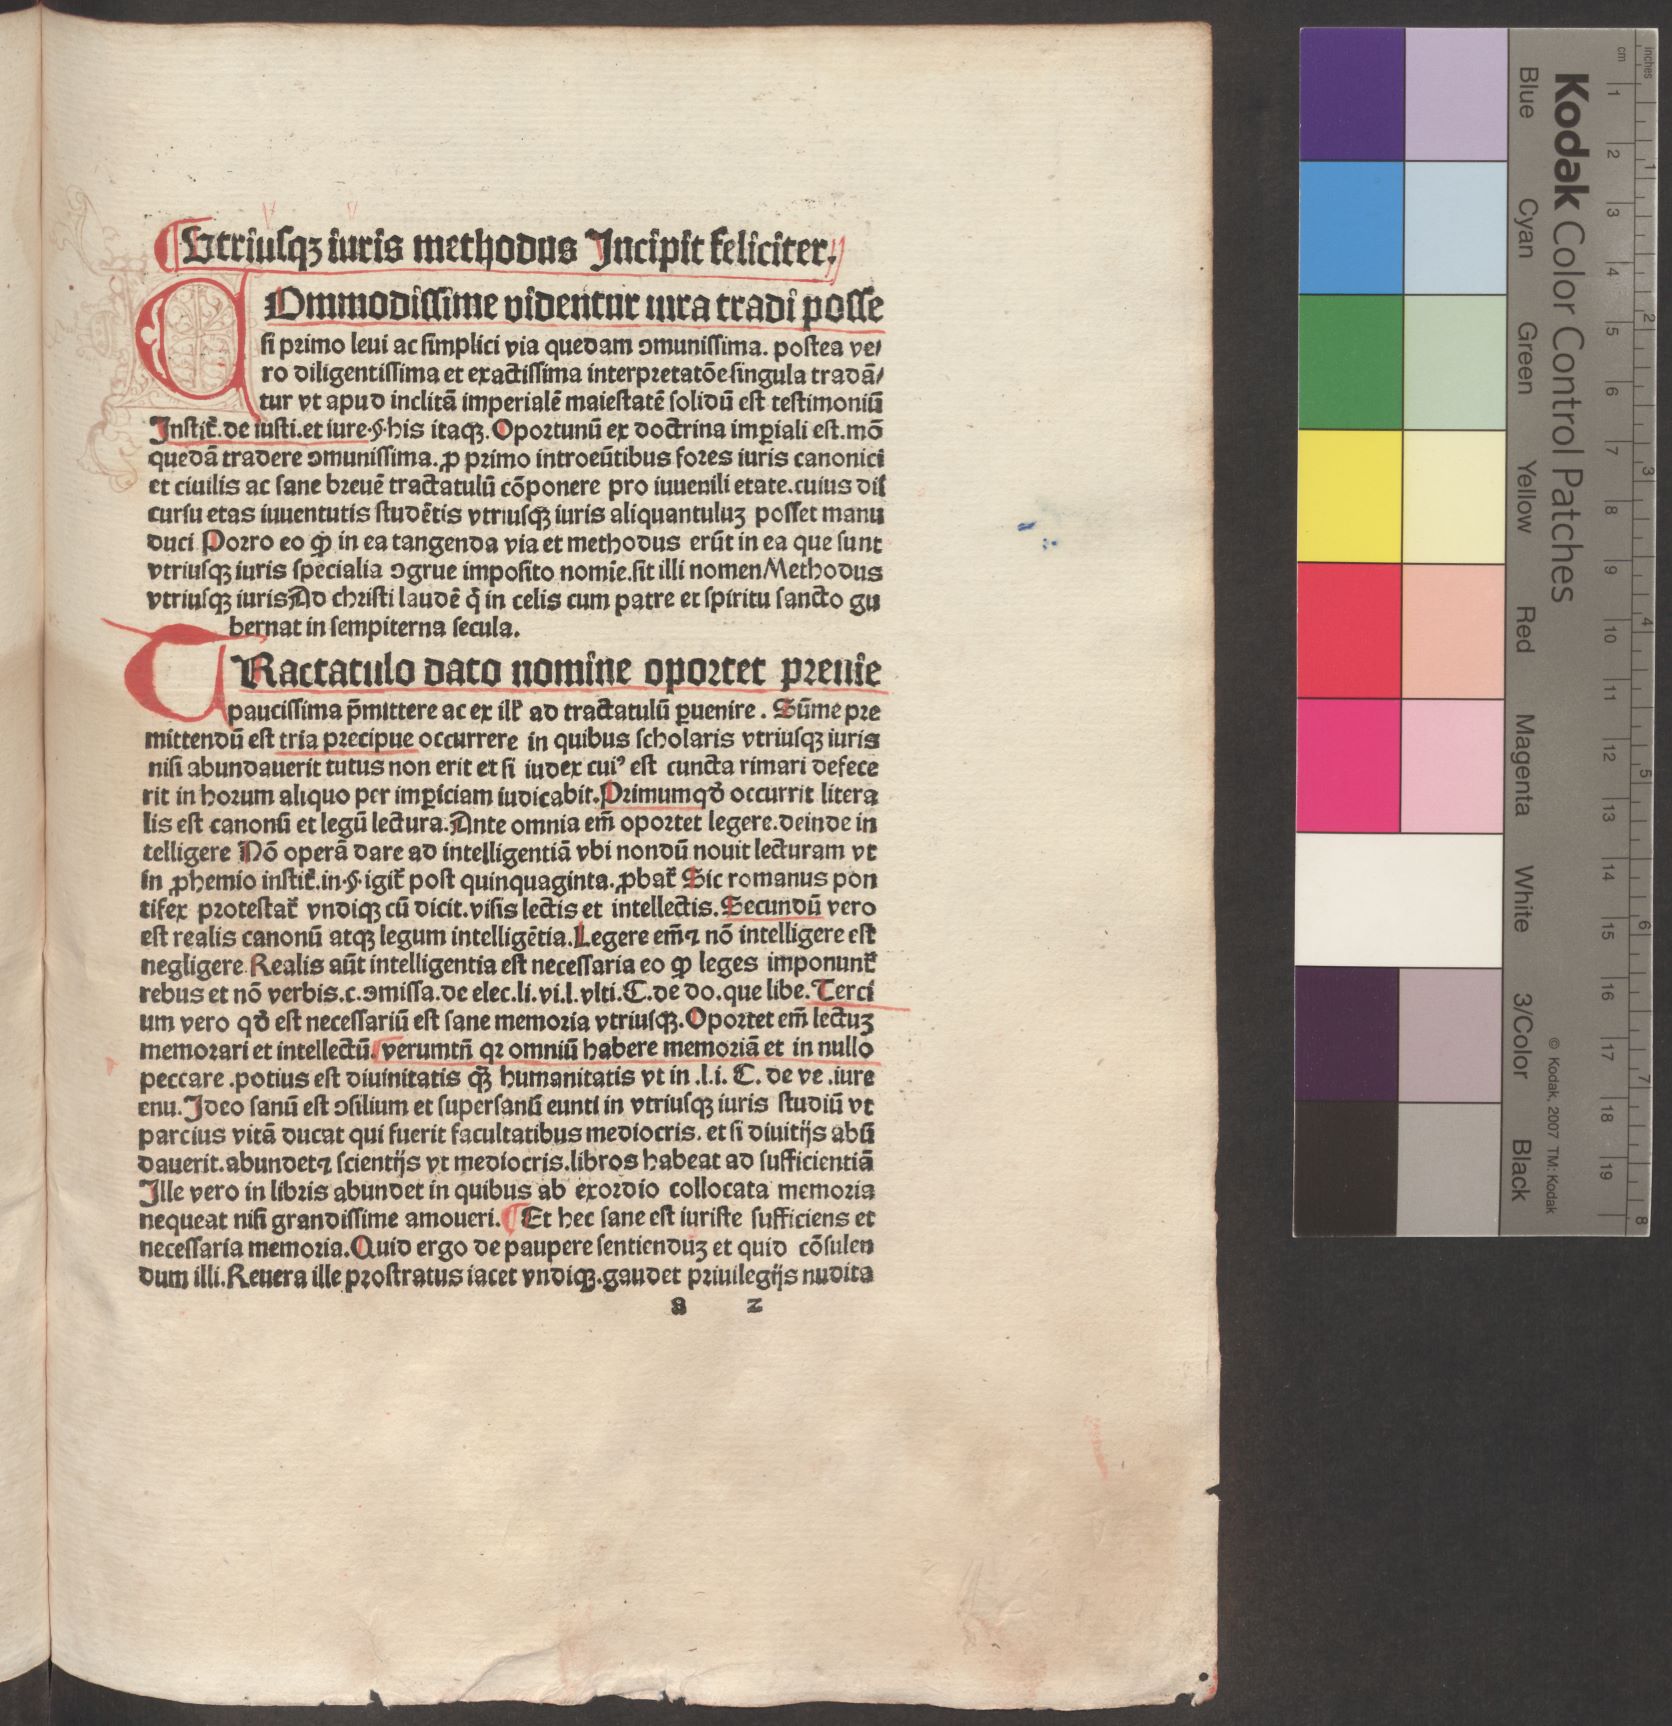 Utriusqꝫ iuris methodus Incipit feliciter.
COmmodissime videntur iura tradi posse
si primo leui ac simplici via quedam ↄmunissima. postea ve/
ro diligentissima et exactissima interpretatōe singula tradā/
tur vt apud inclitā imperialē maiestatē solidū est testimoniū
Instit̃. de iusti. et iure. §. his itaqꝫ. Oportunū ex doctrina imꝑiali est. mō
quedā tradere ↄmunissima. ꝓ primo introeūtibus fores iuris canonici
et ciuilis ac sane breuē tractatulū cōponere pro iuuenili etate. cuius dis
cursu etas iuuentutis studētis vtriusqꝫ iuris aliquantuluꝫ posset manu
duci Porro eo ꝙ in ea tangenda via et methodus erūt in ea que sunt
vtriusqꝫ iuris specialia ↄgrue imposito nomīe. sit illi nomen Methodus
vtriusqꝫ iuris Ad christi laudē q̄ in celis cum patre et spiritu sancto gu
bernat in sempiterna secula.
TRactatulo dato nomine oportet prenie
paucissima p̄mittere ac ex ill̕ ad tractatulū ꝑuenire. Sūme pre
mittendū est tria precipue occurrere in quibus scholaris vtriusqꝫ iuris
nisi abundauerit tutus non erit et si iudex cuiꝰ est cuncta rimari defece
rit in horum aliquo per imꝑiciam iudicabit. Primum qđ occurrit litera
lis est canonū et legū lectura. Ante omnia em̄ oportet legere. deinde in
telligere Nō operā dare ad intelligentiā vbi nondū nouit lecturam vt
in ꝓhemio instit̃. in. §. igit̃ post quinquaginta. ꝓbat̃ Sic romanus pon
tifex protestat̃ vndiqꝫ cū dicit. visis lectis et intellectis. Secundū vero
est realis canonū atqꝫ legum intelligētia. Legere em̄ ⁊ nō intelligere est
negligere. Realis aūt intelligentia est necessaria eo ꝙ leges imponunt̃
rebus et nō verbis. c. ↄmissa. de elec. li. vi. l. vlti. C. de do. que libe. Terci
um vero qđ est necessariū est sane memoria vtriusqꝫ. Oportet em̄ lectuꝫ
memorari et intellectū. verumtn̄ qꝛ omniū habere memoriā et in nullo
peccare. potius est diuinitatis qꝫ̄ humanitatis vt in. l. i. C. de ve. iure
enu. Ideo sanū est ↄsilium et supersanū eunti in vtriusqꝫ iuris studiū vt
parcius vitā ducat qui fuerit facultatibus mediocris. et si diuitijs abū
dauerit. abundet ⁊ scientijs vt mediocris. libros habeat ad sufficientiā
Ille vero in libris abundet in quibus ab exordio collocata memoria
nequeat nisi grandissime amoueri. Et hec sane est iuriste sufficiens et
necessaria memoria. Quid ergo de paupere sentienduꝫ et quid cōsulen
dum illi. Reuera ille prostratus iacet vndiqꝫ. gaudet priuilegijs nudita
a 2
Kodak Color Control Patches
Blue Cyan Green Yellow Red Magenta White 3/Color Black
© Kodak, 2007 TM: Kodak
cm 1 2 3 4 5 6 7 8 9 10 11 12 13 14 15 16 17 18 19
inches 1 2 3 4 5 6 7 8